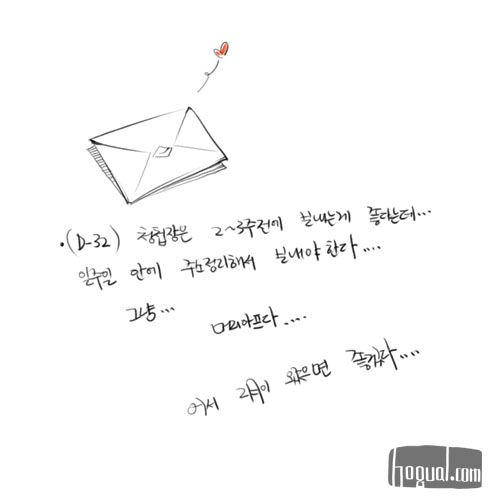 ·(D-32) 청첩장은 2~3주전에 보내는게 좋다는데...
일주일 안에 주소정리해서 보내야 한다....
그냥...
머리아프다....
어서 2월이 왔으면 좋겠다....
hogual.com